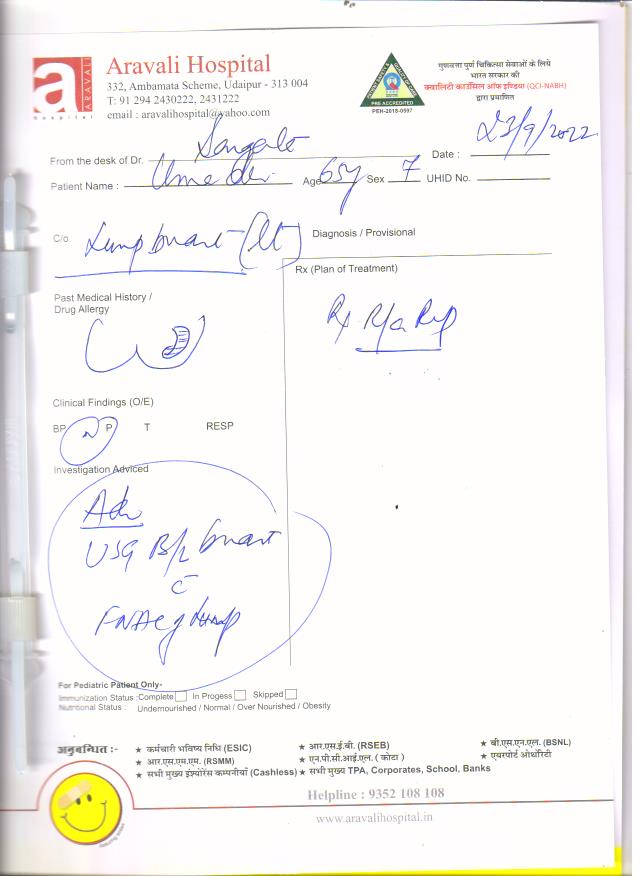 a
ARAVALI
hospital
Aravali Hospital
332, Ambamata Scheme, Udaipur - 313 004
T: 91 294 2430222, 2431222
email : aravalihospital@yahoo.com
PRE ACCREDITED
PEH-2018-0597
गुणवत्ता पुर्ण चिकित्सा सेवाओं के लिये
भारत सरकार की
क्वालिटी काउंसिल ऑफ इण्डिया (QCI-NABH)
द्वारा प्रमाणित
From the desk of Dr. Date : 23/9/2022
Patient Name : Age 65y Sex F UHID No.
C/o Lump breast (Lt) Diagnosis / Provisional
Rx (Plan of Treatment)
Past Medical History /
Drug Allergy
Rx R/a Rep
Clinical Findings (O/E)
BP N P T RESP
Investigation Adviced
Adv
USG B/L breast
c
FNAC of lump
For Pediatric Patient Only-
Immunization Status :Complete In Progess Skipped
Nutritional Status : Undernourished / Normal / Over Nourished / Obesity
अनुबन्धित :- ★ कर्मचारी भविष्य निधि (ESIC) ★ आर.एस.ई.बी. (RSEB) ★ बी.एस.एन.एल. (BSNL)
★ आर.एस.एम.एम. (RSMM) ★ एन.पी.सी.आई.एल. ( कोटा ) ★ एयरपोर्ट ओथॉरिटी
★ सभी मुख्य इंश्योरेंस कम्पनीयाँ (Cashless) ★ सभी मुख्य TPA, Corporates, School, Banks
Helpline : 9352 108 108
www.aravalihospital.in